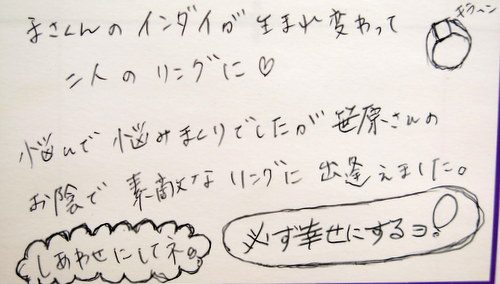 まさくんのインダイが生まれ変わって
二人のリングに♡
キラーン
悩んで悩みまくりでしたが笹原さんの
お陰で素敵なリングに出逢えました。
しあわせにしてネ。
必ず幸せにするヨ!